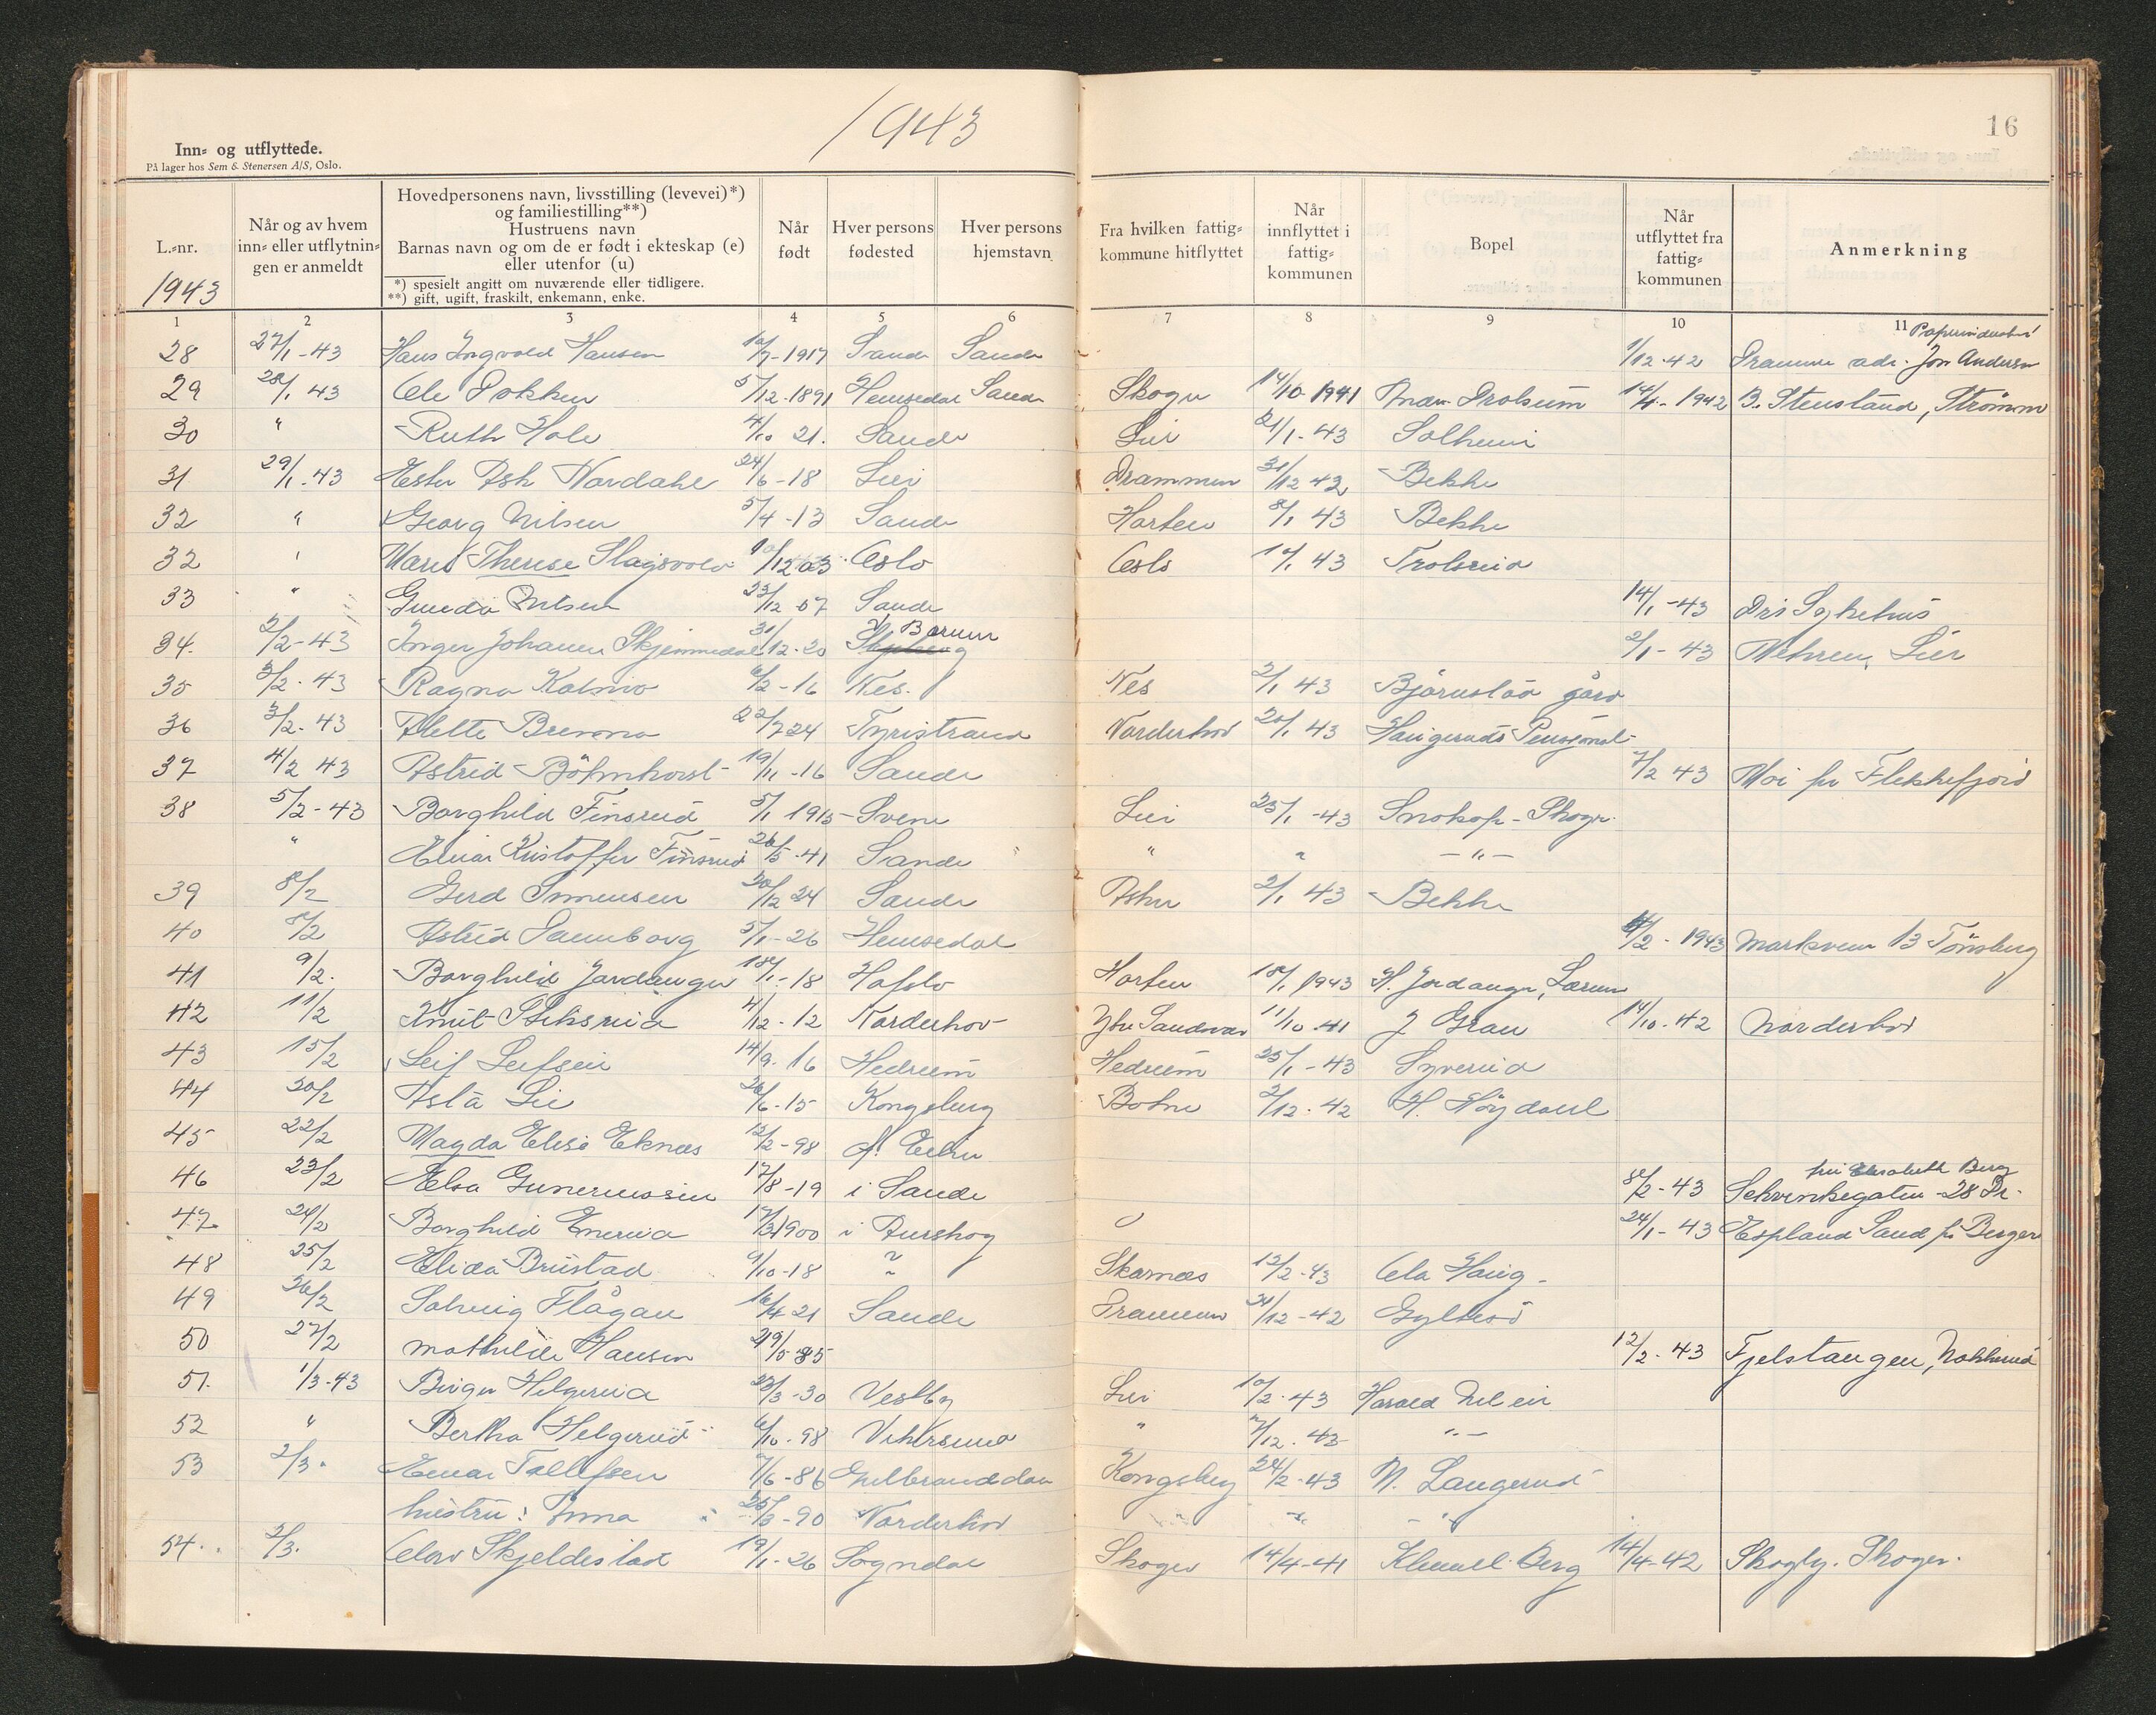 1943
16
Inn- og utflyttede.
På lager hos Sem & Stenersen A/S, Oslo.
L.-nr. 1943
Når og av hvem inn- eller utflytningen er anmeldt
Hovedpersonens navn, livsstilling (levevei)*) og familiestilling**) Hustruens navn Barnas navn og om de er født i ekteskap (e) eller utenfor (u)
*) spesielt angitt om nuværende eller tidligere.
**) gift, ugift, fraskilt, enkemann, enke.
Når født
Hver persons fødested
Hver persons hjemstavn
Fra hvilken fattigkommune hitflyttet
Når innflyttet i fattigkommunen
Bopel
Når utflyttet fra fattigkommunen
Anmerkning
1 2 3 4 5 6 7 8 9 10 11
28 27/1-43 Hans Ingvald Hansen /7-1917 Sande Sande 1/12-42 Drammen adr. Jon Andersen
29 28/1 43 Ole Dokken 5/12-1891 Hemsedal Sande Skoger 14/10 1941 14/4-1942 B. Stensland, Strömm
30 " Ruth Hole 4/10 21. Sande Lier 21/1-43 Solheim
31 29/1-43 Ester Ask Nordahl 24/6-18 Lier Drammen 31/12 42 Bekke
32 " Georg Nilsen 5/4-13 Sande Horten 8/1 43 Bekke
32 " Marie Therese Slagsvold /12 03 Oslo Oslo 43
33 " Gunda Nilsen 23/12-07 Sande 14/1-43 Drs Sykehus
34. 2/2-43 Inger Johanne Skjennedal 31/12-20 V. Bærum 2/1-43 Lier
35 3/2-43 Ragna Nes. Nes 2/1 43 Björnstad gård
36 3/2-43 Mette 22/7 24 Tyristrand Norderhov 20/1 43 Haugeruds Pensjonat
37 4/2 43 Astrid Böhmhorst 19/11-16 Sande 7/2 43 Moi pr Flekkefjord
38 5/2-43 Borghild Finsrud 5/1 1915 Svene Lier 25/1-43 Snekop - Skoger.
" Einar Kristoffer Finsrud 26/5-41 Sande " " - " -
39 8/2 Gerd Simensen 20/12 24 Sande Asker 2/1 43 Bekke
40 8/2 Astrid 5/1-26 Hemsedal /2-1943 Markveien 13 Tönsberg
41 9/2. Borghild Jordanger 18/1-18 Hafslo Horten 18/1 1943 H. Jordanger,
42 11/2 Knut 4/12-12 Norderhov Ytre Sandsvær 11/10-41 J Grau 14/10-42 Norderhov
43 15/2 Leif Leifsen 14/9-16 Hedrum Hedrum 25/1-43 Syverud
44 20/2 Asta Lie 26/6-15 Kongsberg Botne 2/12-42 H. Höydahl
45 22/2 Magda Elise Eknæs 12/2-98 Ø. Eiker
46 23/2 Elsa Gunerussen 17/8-19 i Sande 8/2-43 fru Elisabeth Berg Schwenkegaten 28 Dr.
47 24/2 Borghild Enerud 17/3 1900 i Aurskog 24/1-43 Espland Sand pr Berger
48 25/2 Elida Brustad 9/10-18 " Skarnes 12/2-43 Ola Haug -
49 26/2 Solveig Flågan 16/4 21 Sande Drammen 31/12-42
50 27/2 Mathilde Hansen 29/5-85 12/2-43 Fjelstangen, Nakkerud
51. 1/3-43 Birger Helgerud 23/3-30 Vestby Lier 10/2-43 Harald Nilsen
52 " Bertha Helgerud 6/10-98 Vikersund " /12-43 " -
53 2/3. Einar Tollefsen 7/6-86 Gulbrandsdalen Kongsberg 24/2-43 N. Langerud
hustru: Anna 25/3-90 Norderhov " " "
54.. 3/3. Olav Skjeldestad 19/1-26 Sogndal Skoger 14/4-41 Klemmet Berg 14/4-42 Skogly. Skoger.